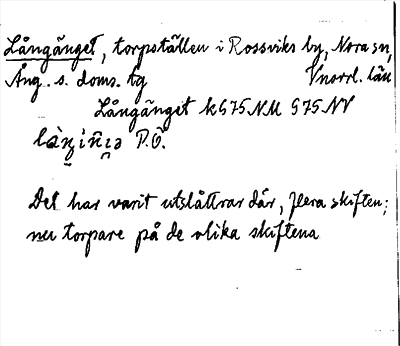 Långänget, torpställen i Rossviks by, Nora sn,
Ång. s. doms. tg Vnorrl. län
Långänget kG75NM G75NV
P.Ö.
Det har varit utslåttrar där, flera skiften;
nu torpare på de olika skiftena